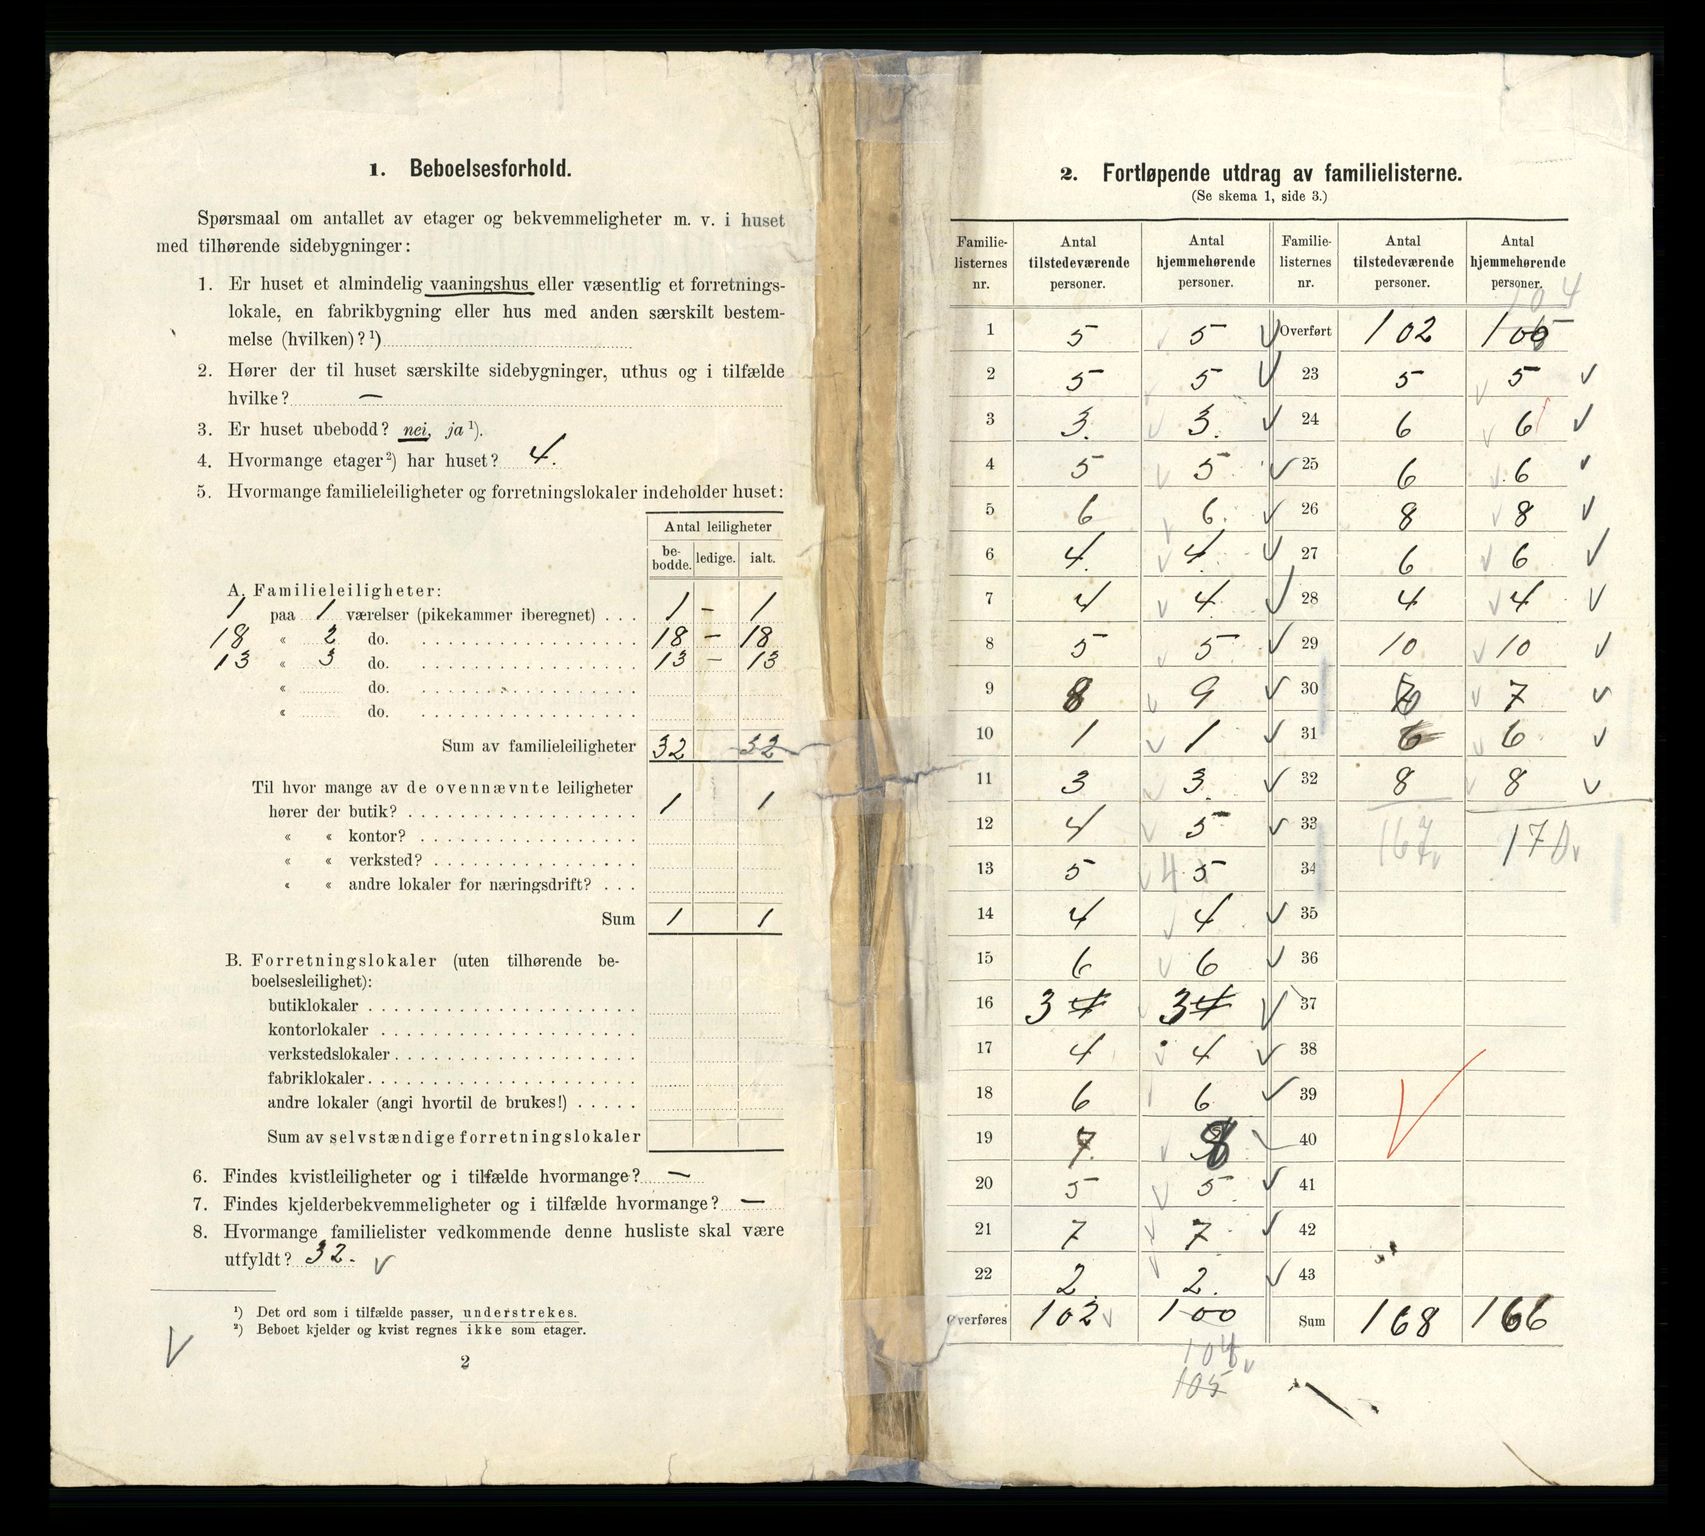 1. Beboelsesforhold.
Spørsmaal om antallet av etager og bekvemmeligheter m. v. i huset
med tilhørende sidebygninger:
1. Er huset et almindelig vaaningshus eller væsentlig et forretnings-
lokale, en fabrikbygning eller hus med anden særskilt bestem-
melse (hvilken)? ¹)
2. Hører der til huset særskilte sidebygninger, uthus og i tilfælde
hvilke? —
3. Er huset ubebodd? nei, ja ¹).
4. Hvormange etager ²) har huset? 4.
5. Hvormange familieleiligheter og forretningslokaler indeholder huset:
Antal leiligheter
be-bodde. ledige. ialt.
A. Familieleiligheter:
1 paa 1 værelser (pikekammer iberegnet) . . . 1 – 1
18 « 2 do. 18 – 18
13 « 3 do. 13 – 13
« do.
« do.
Sum av familieleiligheter 32 32
Til hvor mange av de ovennævnte leiligheter
hører der butik? 1 1
« « kontor?
« « verksted?
« « andre lokaler for næringsdrift? . . .
Sum 1 1
B. Forretningslokaler (uten tilhørende be-
boelsesleilighet):
butiklokaler
kontorlokaler
verkstedslokaler
fabriklokaler
andre lokaler (angi hvortil de brukes!)
Sum av selvstændige forretningslokaler
6. Findes kvistleiligheter og i tilfælde hvormange? —
7. Findes kjelderbekvemmeligheter og i tilfælde hvormange? —
8. Hvormange familielister vedkommende denne husliste skal være
utfyldt? 32.
¹) Det ord som i tilfælde passer, understrekes.
²) Beboet kjelder og kvist regnes ikke som etager.
2
2. Fortløpende utdrag av familielisterne.
(Se skema 1, side 3.)
Familie-listernes nr. Antal tilstedeværende personer. Antal hjemmehørende personer. Familie-listernes nr. Antal tilstedeværende personer. Antal hjemmehørende personer.
104
1 5 5 Overført 102 100
2 5 5 23 5 5
3 3. 3. 24 6 6
4 5 5 25 6 6
5 6 6 26 8 8
6 4. 4. 27 6 6
7 4 4 28 4 4
8 5 5 29 10 10
9 8 9 30 7 7
10 1 1 31 6 6
11 3 3. 32 8 8
12 4 5 33 170
13 5 4 5 34
14 4 4 35
15 6 6 36
16 3 4 3 4 37
17 4 4 38
18 6 6 39
19 7. 8 40
20 5 5 41
21 7 7 42
22 2. 2. 43
Overføres 102 100 Sum 168 166
104
105